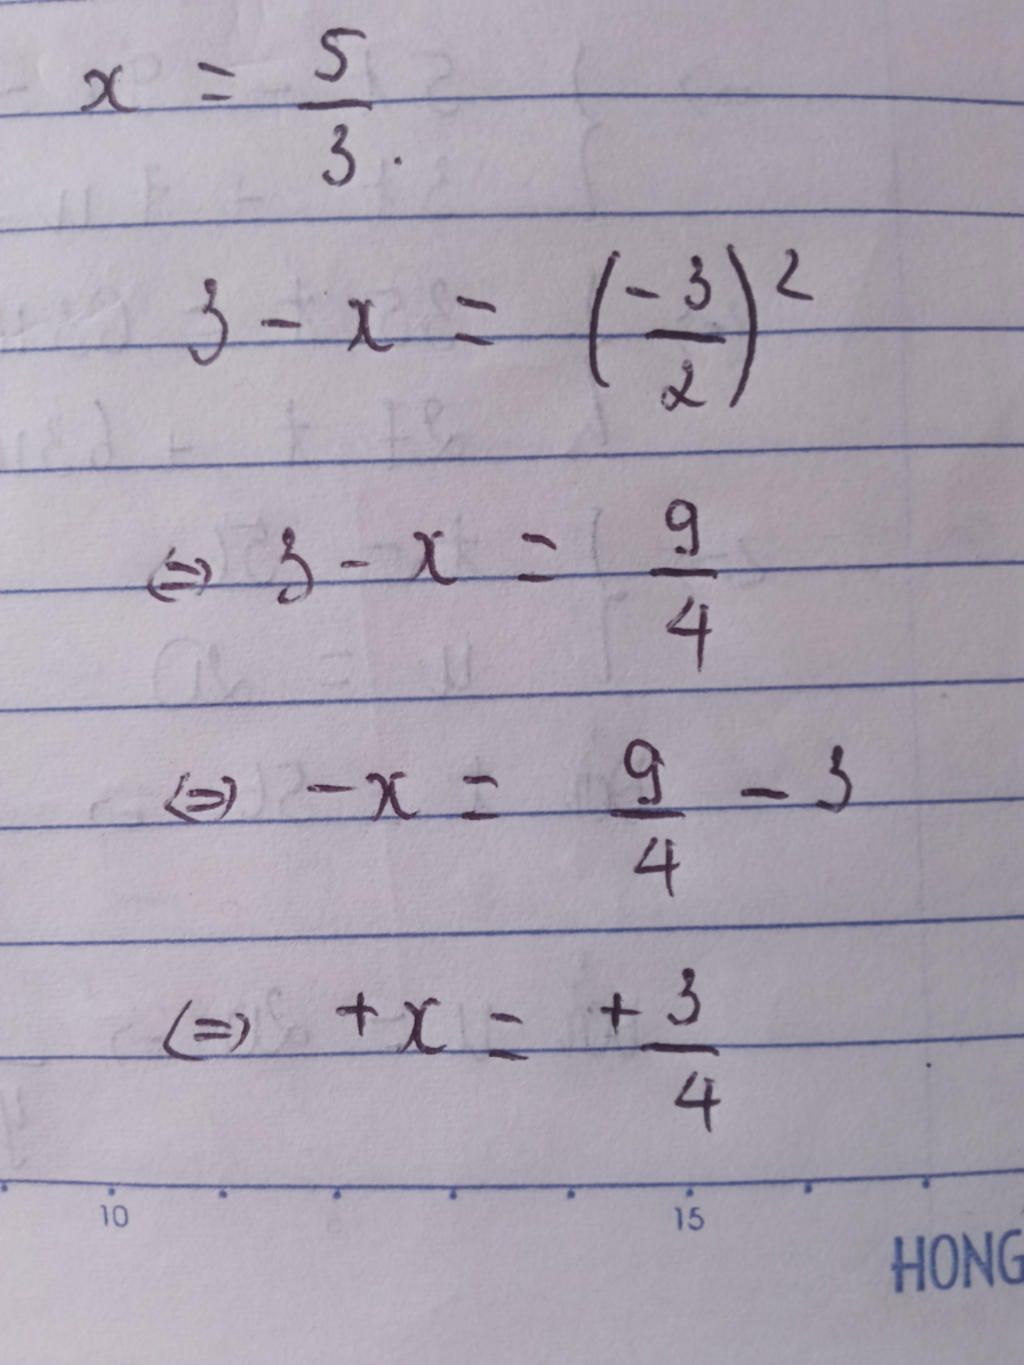 x = 5/3.
3 - x = (-3/2)^2
⇔ 3 - x = 9/4
⇔ -x = 9/4 - 3
⇔ +x = +3/4
10 15
HONG